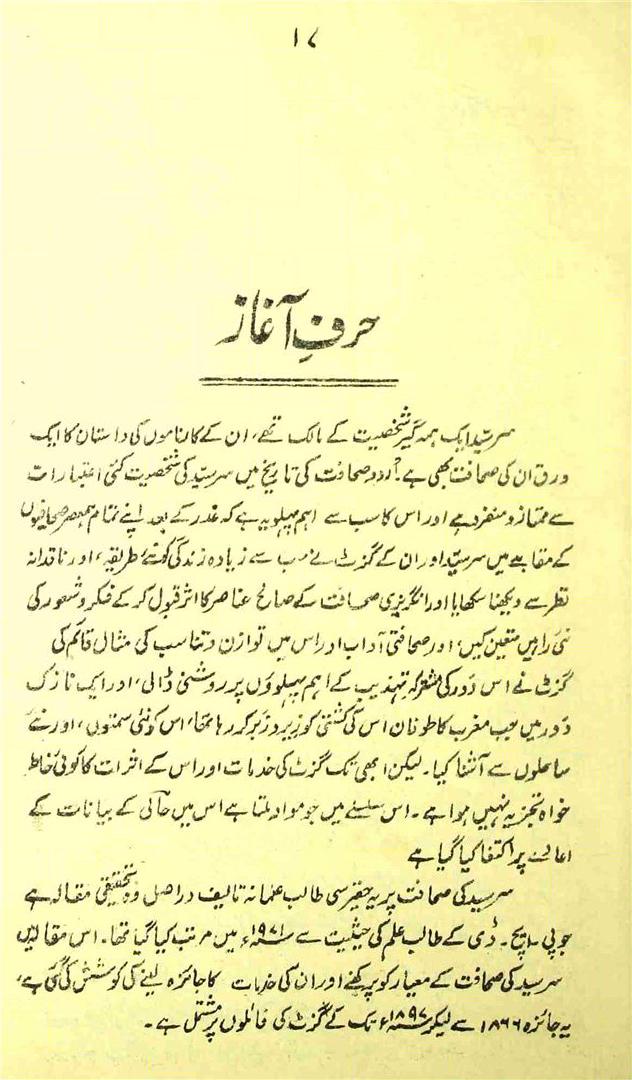 ۱۷
حرفِ آغاز
سرسید ایک ہمہ گیر شخصیت کے مالک تھے، ان کے کارناموں کی داستان کا ایک
ورق ان کی صحافت بھی ہے۔ اردو صحافت کی تاریخ میں سرسید کی شخصیت کئی اعتبارات
سے ممتاز و منفرد ہے اور اس کا سب سے اہم پہلو یہ ہے کہ غدر کے بعد اپنے تمام ہمعصر صحافیوں
کے مقابلے میں سرسید اور ان کے گزٹ نے سب سے زیادہ زندگی کو نئے طریقے، اور ناقدانہ
نظر سے دیکھنا سکھایا اور انگریزی صحافت کے صالح عناصر کا اثر قبول کر کے فکر و شعور کی
نئی راہیں متعین کیں، اور صحافتی آداب اور اس میں توازن و تناسب کی مثال قائم کی
گزٹ نے اس دور کی مشترکہ تہذیب کے اہم پہلوؤں پر روشنی ڈالی، اور ایک نازک
دور میں جب مغرب کا طوفان اس کی کشتی کو زیر و زبر کر رہا تھا، اس کو نئی سمتوں، اور نئے
ساحلوں سے آشنا کیا۔ لیکن ابھی تک گزٹ کی خدمات اور اس کے اثرات کا کوئی خاطر
خواہ تجزیہ نہیں ہوا ہے۔ اس سلسلے میں جو مواد ملتا ہے اس میں حالی کے بیانات کے
اعادے پر اکتفا کیا گیا ہے
سرسید کی صحافت پر یہ حقیر سی طالب علمانہ تالیف دراصل وہ تحقیقی مقالہ ہے
جو پی۔ ایچ۔ ڈی کے طالب علم کی حیثیت سے ۱۹۷۱ء میں مرتب کیا گیا تھا۔ اس مقالہ میں
سرسید کی صحافت کے معیار کو پرکھنے اور ان کی خدمات کا جائزہ لینے کی کوشش کی گئی ہے،
یہ جائزہ ۱۸۶۶ سے لیکر ۱۸۹۷ء تک کے گزٹ کی فائلوں پر مشتمل ہے۔